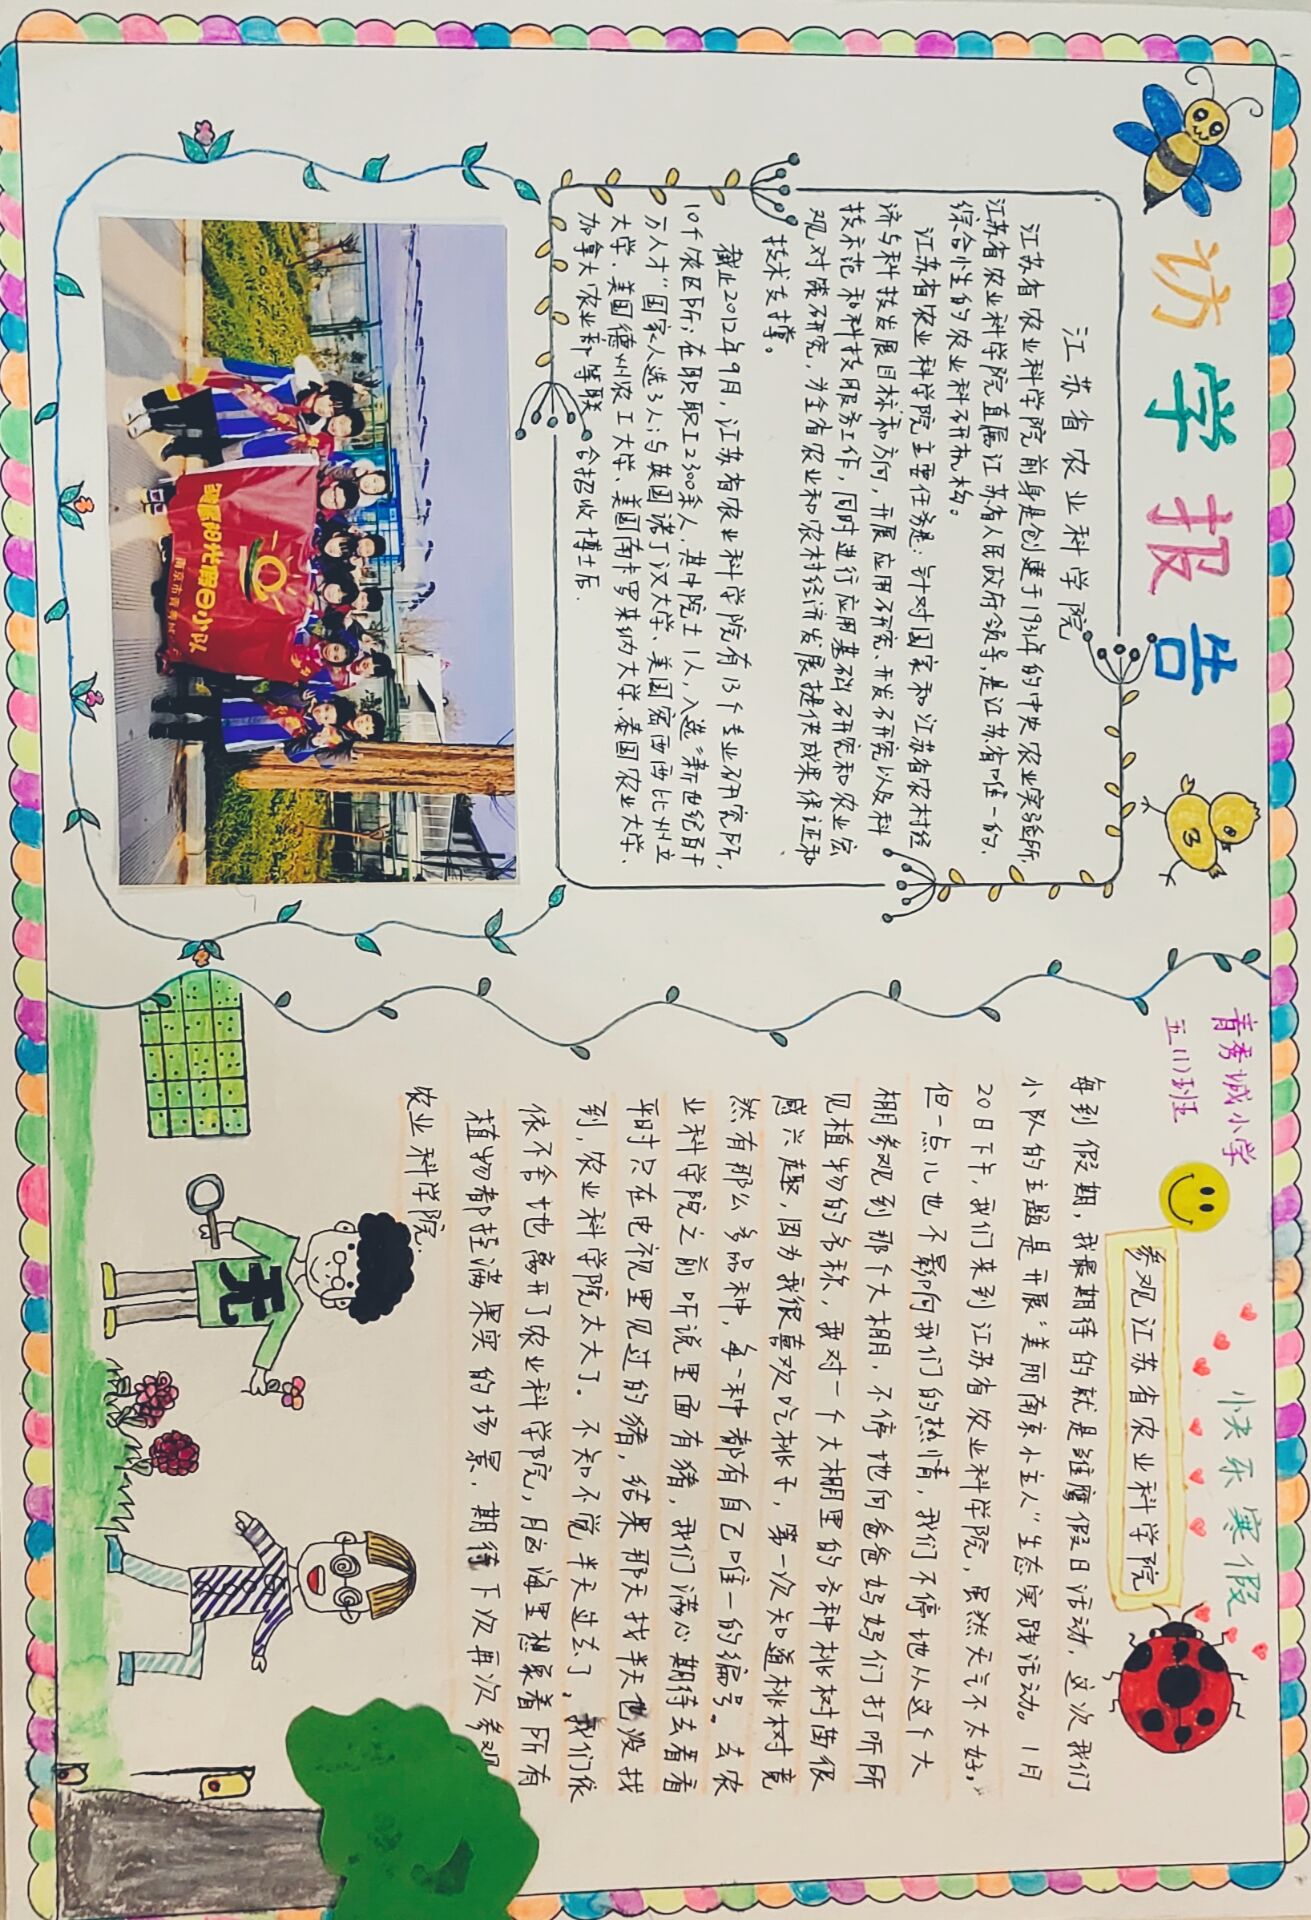 访学报告
江苏省农业科学院
江苏省农业科学院前身是创建于1931年的中央农业实验所,
江苏省农业科学院直属江苏省人民政府领导,是江苏省唯一的、
综合性的农业科研机构。
江苏省农业科学院主要任务是:针对国家和江苏省农村经
济与科技发展目标和方向,开展应用研究、开发研究以及科
技示范和科技服务工作,同时进行应用基础研究和农业宏
观对策研究,为全省农业和农村经济发展提供成果保证和
技术支撑。
截止2012年9月,江苏省农业科学院有13个专业研究所,
10个农区所;在职职工2300余人,其中院士1人,入选“新世纪百千
万人才”国家人选3人;与英国诺丁汉大学、美国密西西比州立
大学、美国德州农工大学、美国南卡罗莱纳大学、泰国农业大学、
加拿大农业部等联合招收博士后.
阳光假日小队
南京市青秀城
3
青秀城小学
五(1)班
小夫乐寒假
参观江苏省农业科学院
每到假期,我最期待的就是雏鹰假日活动,这次我们
小队的主题是开展“美丽南京小主人”生态实践活动。1月
20日下午,我们来到江苏省农业科学院,虽然天气不太好,
但一点儿也不影响我们的热情,我们不停地从这个大
棚参观到那个大棚,不停地向爸爸妈妈们打听所
见植物的名称,我对一个大棚里的各种桃树苗很
感兴趣,因为我很喜欢吃桃子,第一次知道桃树竟
然有那么多品种,每一种都有自己唯一的编号。去农
业科学院之前听说里面有猪,我们满心期待去看看
平时只在电视里见过的猪,结果那天找半天也没找
到,农业科学院太大了。不知不觉,半天过去了,我们依
依不舍地离开了农业科学院,脑海里想象着所有
植物都挂满果实的场景,期待下次再次参观
农业科学院.
无